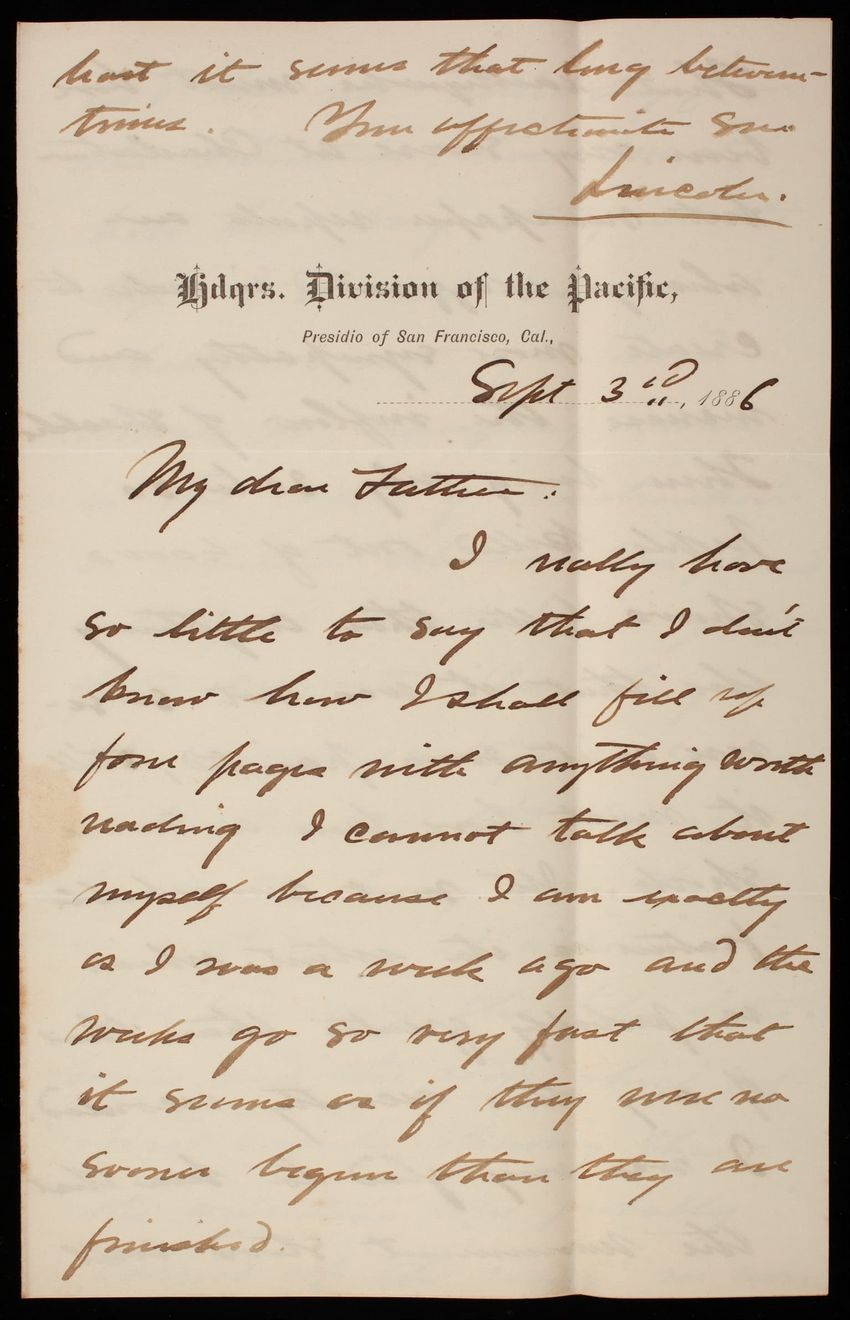 least it seems that long between-
times. Your affectionate Son
Lincoln.
Hdqrs. Division of the Pacific,
Presidio of San Francisco, Cal.,
Sept 3rd, 1886
My dear Father:
I really have
so little to say that I don't
know how I shall fill up
four pages with anything worth
reading I cannot talk about
myself because I am exactly
as I was a week ago and the
weeks go so very fast that
it seems as if they were no
sooner begun than they are
finished.